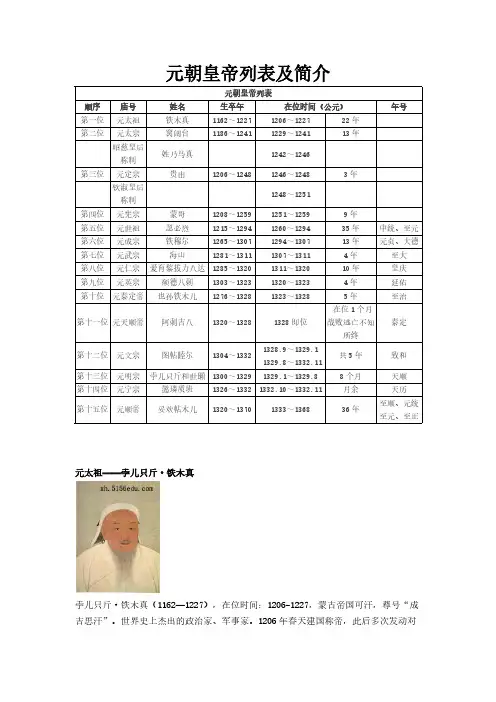 元朝皇帝列表及简介
元朝皇帝列表
顺序 庙号 姓名 生卒年 在位时间(公元) 年号
第一位 元太祖 铁木真 1162～1227 1206～1227 22年
第二位 元太宗 窝阔台 1186～1241 1229～1241 13年
昭慈皇后
称制 姓乃马真 1242～1246
第三位 元定宗 贵由 1206～1248 1246～1248 3年
钦淑皇后
称制 1248～1251
第四位 元宪宗 蒙哥 1208～1259 1251～1259 9年
第五位 元世祖 忽必烈 1215～1294 1260～1294 35年 中统、至元
第六位 元成宗 铁穆尔 1265～1307 1294～1307 13年 元贞、大德
第七位 元武宗 海山 1281～1311 1307～1311 4年 至大
第八位 元仁宗 爱育黎拔力八达 1285～1320 1311～1320 10年 皇庆
第九位 元英宗 硕德八剌 1303～1323 1320～1323 4年 延佑
第十位 元泰定帝 也孙铁木儿 1276～1328 1323～1328 5年 至治
第十一位 元天顺帝 阿剌吉八 1320～1328 1328即位 在位1个月
战败逃亡不知
所终 泰定
第十二位 元文宗 图帖睦尔 1304～1332 1328.9～1329.1
1329.8～1332.11 共5年 致和
第十三位 元明宗 孛儿只斤和世瓎 1300～1329 1329.1～1329.8 8个月 天顺
第十四位 元宁宗 懿璘质班 1326～1332 1332.10～1332.11 月余 天历
第十五位 元顺帝 妥欢帖木儿 1320～1370 1333～1368 36年 至顺、元统
至元、至正
元太祖——孛儿只斤·铁木真
zh.5156edu.com
孛儿只斤·铁木真(1162—1227)，在位时间：1206-1227，蒙古帝国可汗，尊号“成
吉思汗”。世界史上杰出的政治家、军事家。1206年春天建国称帝，此后多次发动对